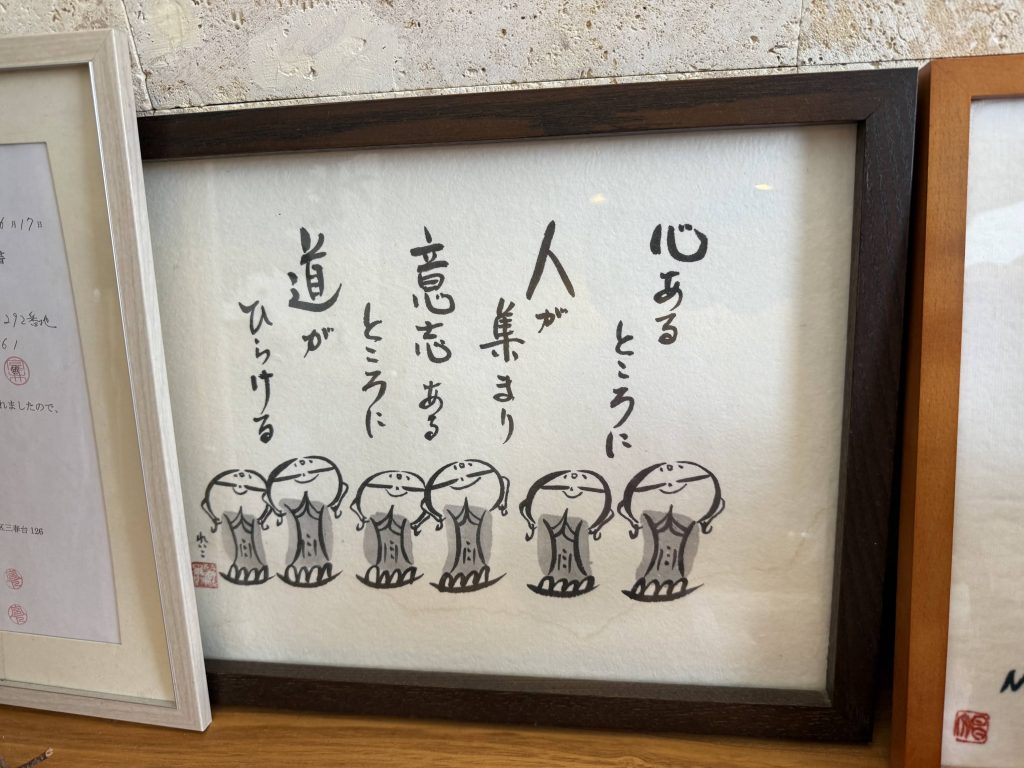 心ある
ところに
人が
集まり
意志ある
ところに
道が
ひらける
6月17日
292番地
61
れましたので、
区三春台126